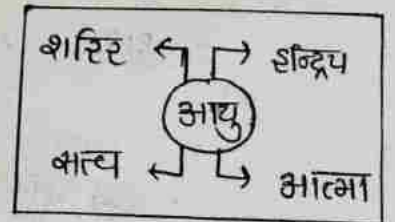 शरिर इन्द्रिय
आयु
सत्व आत्मा